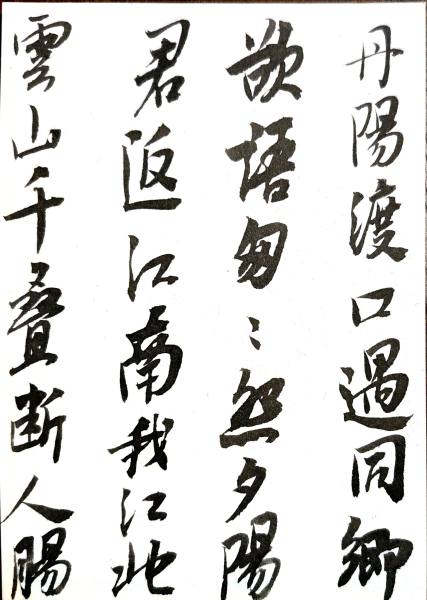 丹陽渡口遇同鄉
欲語匆〻怨夕陽
君返江南我江北
雲山千疊断人腸